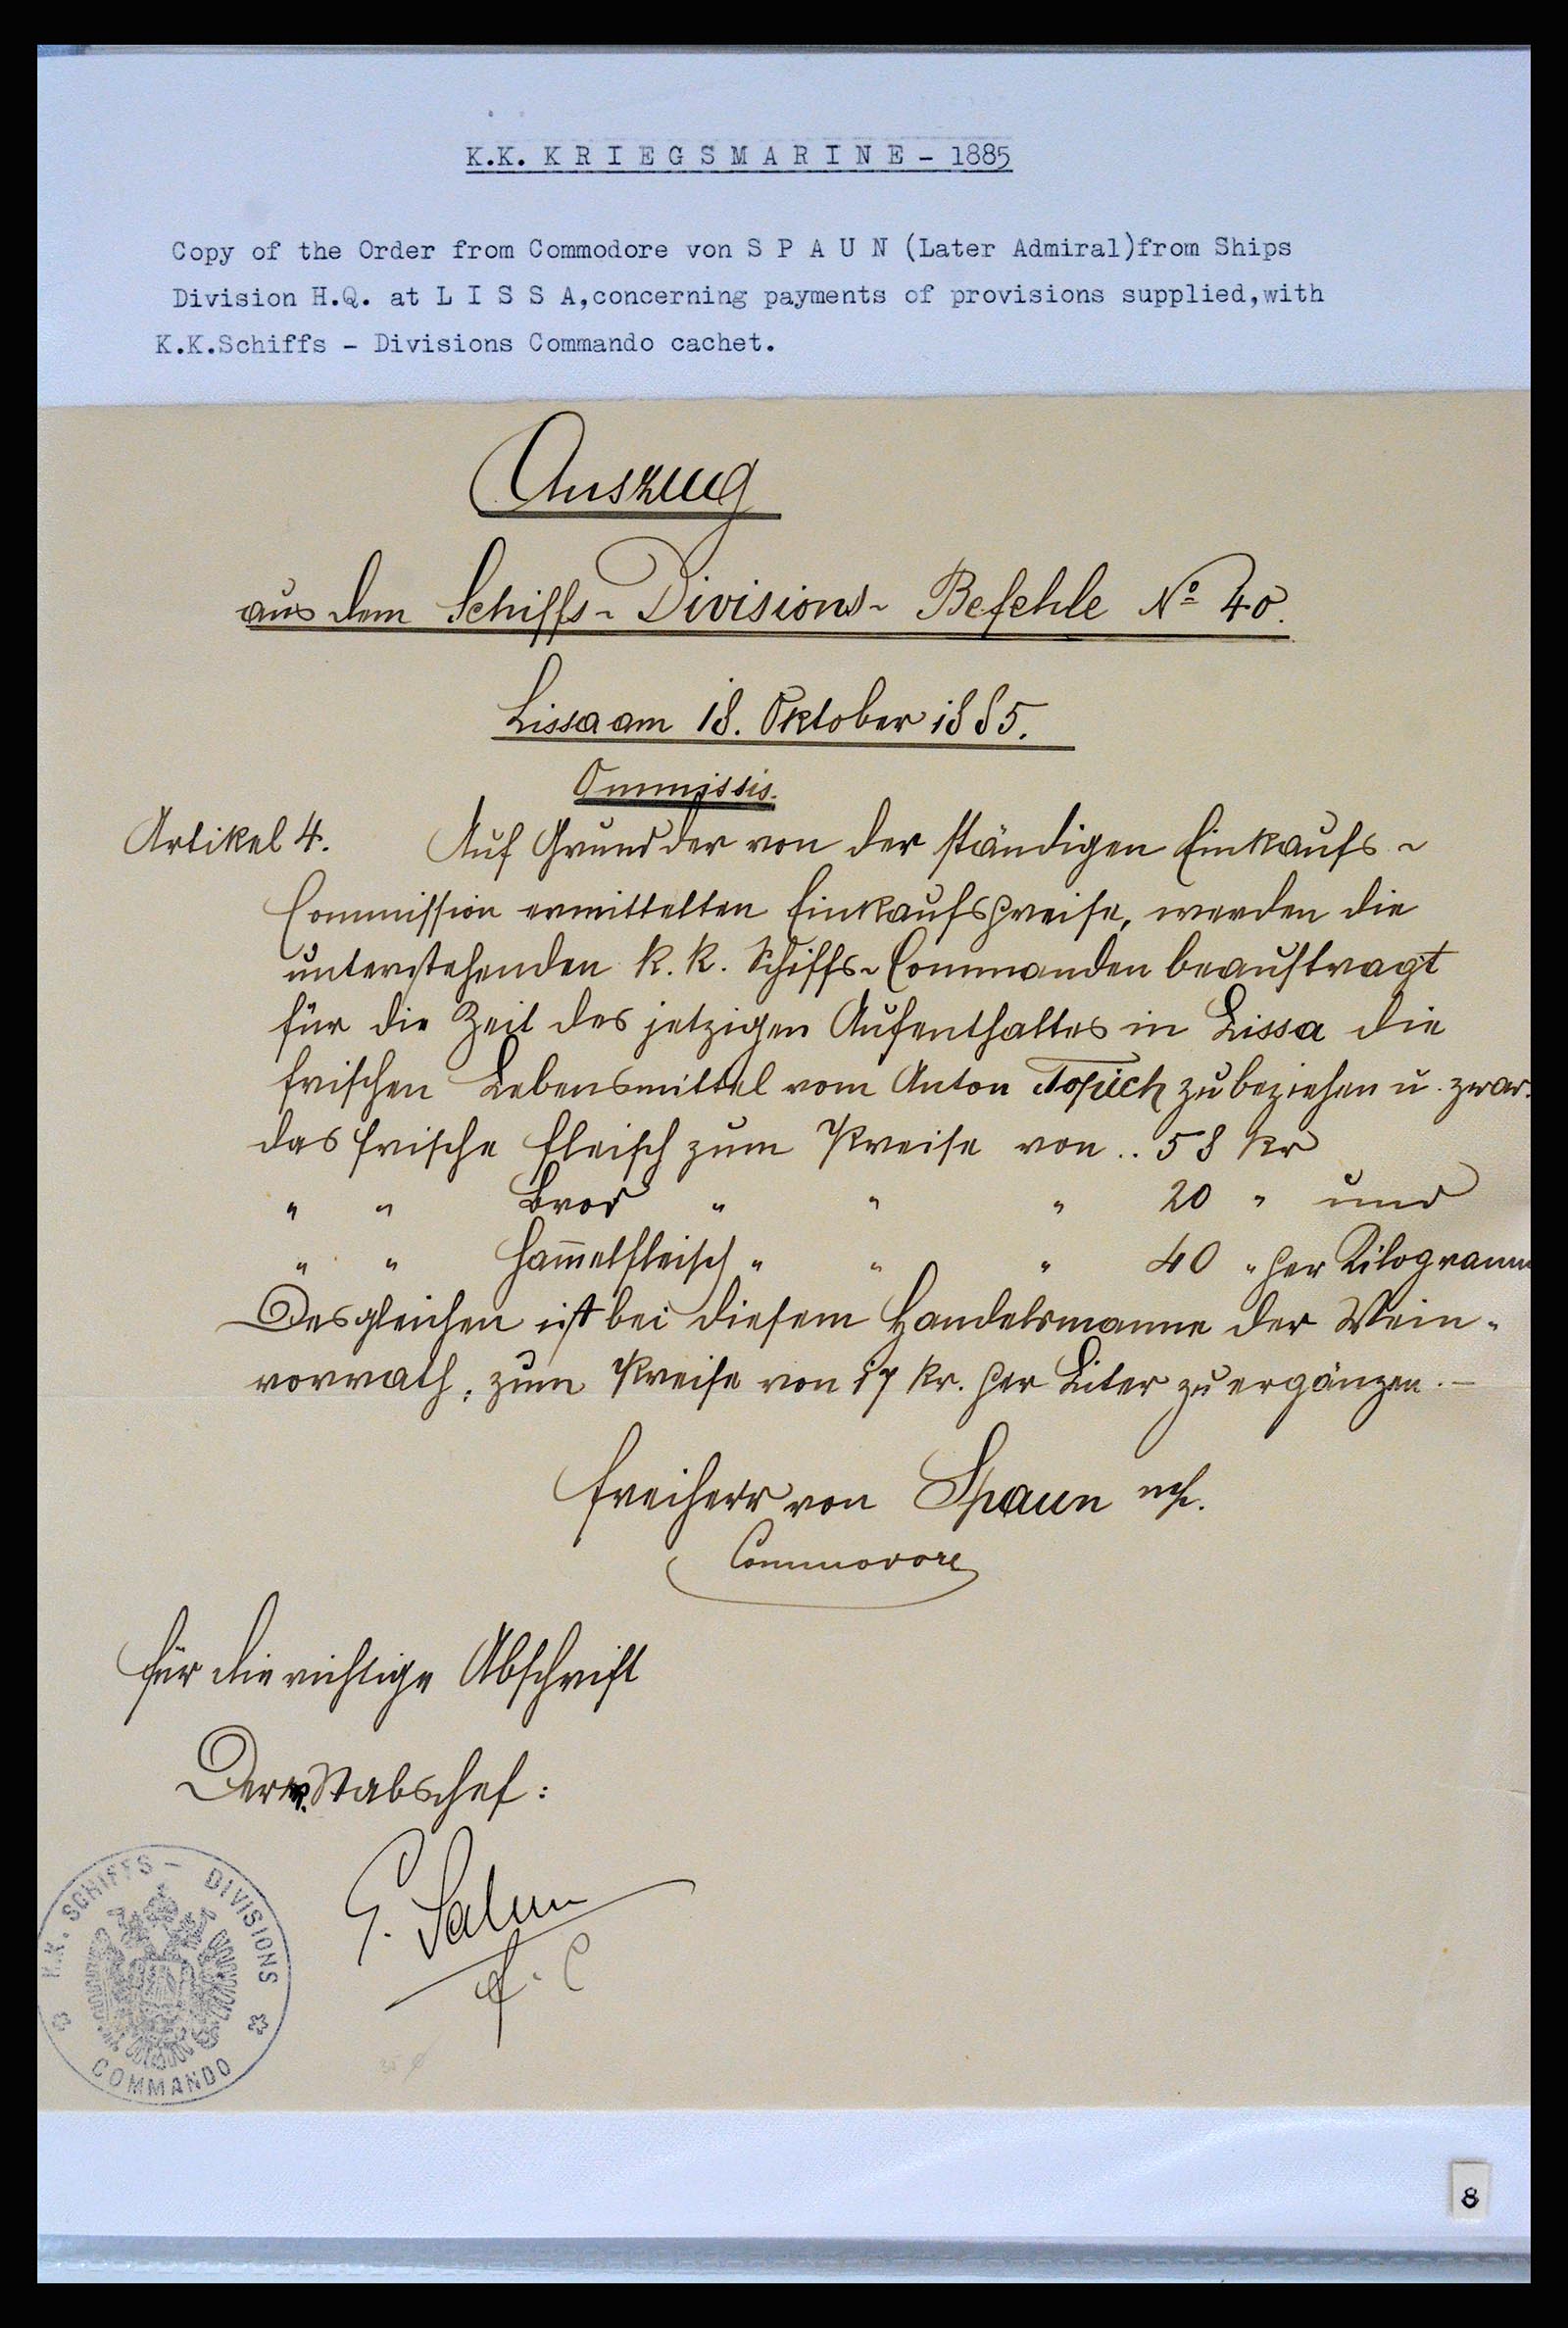 K.K. K R I E G S M A R I N E - 1885
Copy of the Order from Commodore von S P A U N (Later Admiral)from Ships
Division H.Q. at L I S S A,concerning payments of provisions supplied,with
K.K.Schiffs - Divisions Commando cachet.
Auszug
aus dem Schiffs-Divisions-Befehle No 40.
Lissa am 18. Oktober 1885.
Ommissis.
Artikel 4. Auf Grund der von der ständigen Einkaufs-
Commission ermittelten Einkaufspreise, werden die
unterstehenden k. k. Schiffs-Commanden beauftragt
für die Zeit des jetzigen Aufenthaltes in Lissa die
frischen Lebensmittel vom Anton Topich zu beziehen u. zwar.
das frische Fleisch zum Preise von .. 58 kr
" " Brod " " " 20 " und
" " Ham̅elfleisch " " " 40 " per Kilogramm
Desgleichen ist bei diesem Handelsmanne der Wein-
vorrath, zum Preise von 17 kr. per Liter zu ergänzen. -
Freiherr von Spaun
Commodore
Für die richtige Abschrift
Der Stabschef:
K.K. SCHIFFS - DIVISIONS
COMMANDO
8